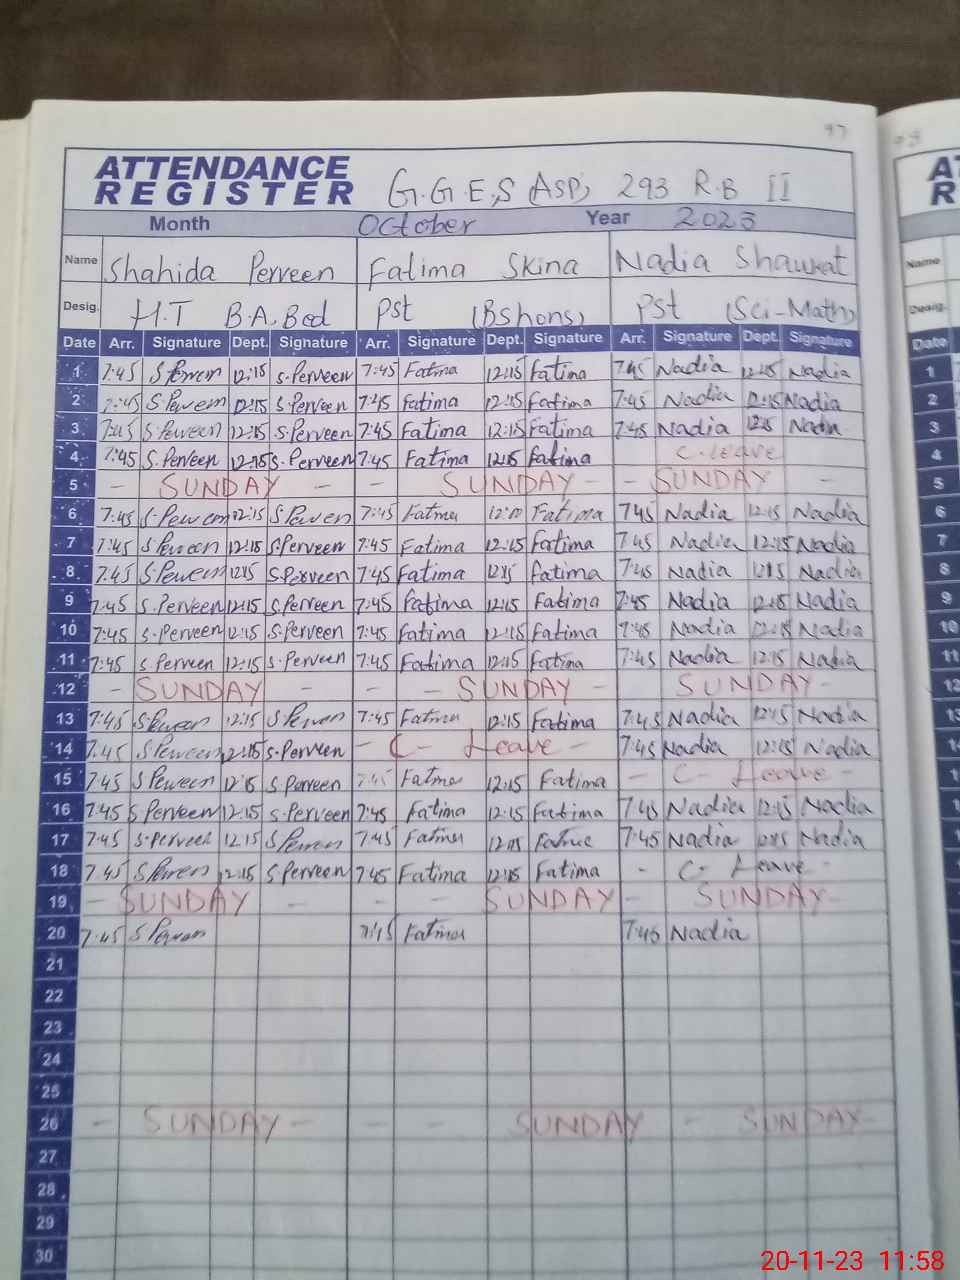 97
ATTENDANCE
REGISTER G.G.E,S (ASP) 293 R.B II
Month October Year 2023
Name Shahida Perveen Fatima Skina Nadia Shawkat
Desig. H.T B.A, Bed Pst (Bshons) Pst (Sci-Math)
Date Arr. Signature Dept. Signature Arr. Signature Dept. Signature Arr. Signature Dept. Signature
1 7:45 S Perveen 12:15 S.Perveen 7:45 Fatima 12:15 Fatima 7:45 Nadia 12:15 Nadia
2 7:45 S.Perveen 12:15 S.Perveen 7:45 Fatima 12:15 Fatima 7:45 Nadia 12:15 Nadia
3 7:45 S.Perveen 12:15 S.Perveen 7:45 Fatima 12:15 Fatima 7:45 Nadia 12:15 Nadia
4 7:45 S.Perveen 12:15 S.Perveen 7:45 Fatima 12:15 Fatima C.leave
5 - SUNDAY - - SUNDAY - - SUNDAY -
6 7:45 S.Perveen 12:15 S.Perveen 7:45 Fatima Fatima 7:45 Nadia 12:15 Nadia
7 7:45 S.Perveen 12:15 S.Perveen 7:45 Fatima 12:15 Fatima 7:45 Nadia 12:15 Nadia
8 7:45 S.Perveen 12:15 S.Perveen 7:45 Fatima 12:15 Fatima 7:45 Nadia 12:15 Nadia
9 7:45 S.Perveen 12:15 S.Perveen 7:45 Fatima 12:15 Fatima 7:45 Nadia 12:15 Nadia
10 7:45 S.Perveen 12:15 S.Perveen 7:45 Fatima 12:15 Fatima 7:45 Nadia 12:15 Nadia
11 7:45 S Perveen 12:15 S.Perveen 7:45 Fatima 12:15 Fatima 7:45 Nadia 12:15 Nadia
12 - SUNDAY - - - SUNDAY - SUNDAY -
13 7:45 S.Perveen 12:15 S.Perveen 7:45 Fatima 12:15 Fatima 7:45 Nadia 12:15 Nadia
14 7:45 S.Perveen 12:15 S.Perveen - C- Leave - 7:45 Nadia 12:15 Nadia
15 7:45 S.Perveen 12:15 S.Perveen 7:45 Fatima 12:15 Fatima - C- Leave -
16 7:45 S.Perveen 12:15 S.Perveen 7:45 Fatima 12:15 Fatima 7:45 Nadia 12:15 Nadia
17 7:45 S.Perveen 12:15 S.Perveen 7:45 Fatima 12:15 Fatima 7:45 Nadia 12:15 Nadia
18 7:45 S.Perveen 12:15 S.Perveen 7:45 Fatima 12:15 Fatima - C- Leave -
19 - SUNDAY - - - SUNDAY - SUNDAY -
20 7:45 S Perveen 7:45 Fatima 7:45 Nadia
21
22
23
24
25
26 - SUNDAY - - - SUNDAY - SUNDAY -
27
28
29
30
20-11-23 11:58